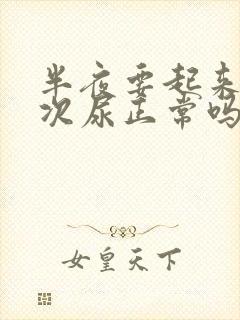 半夜要起来
次尿正常吗
女皇天下